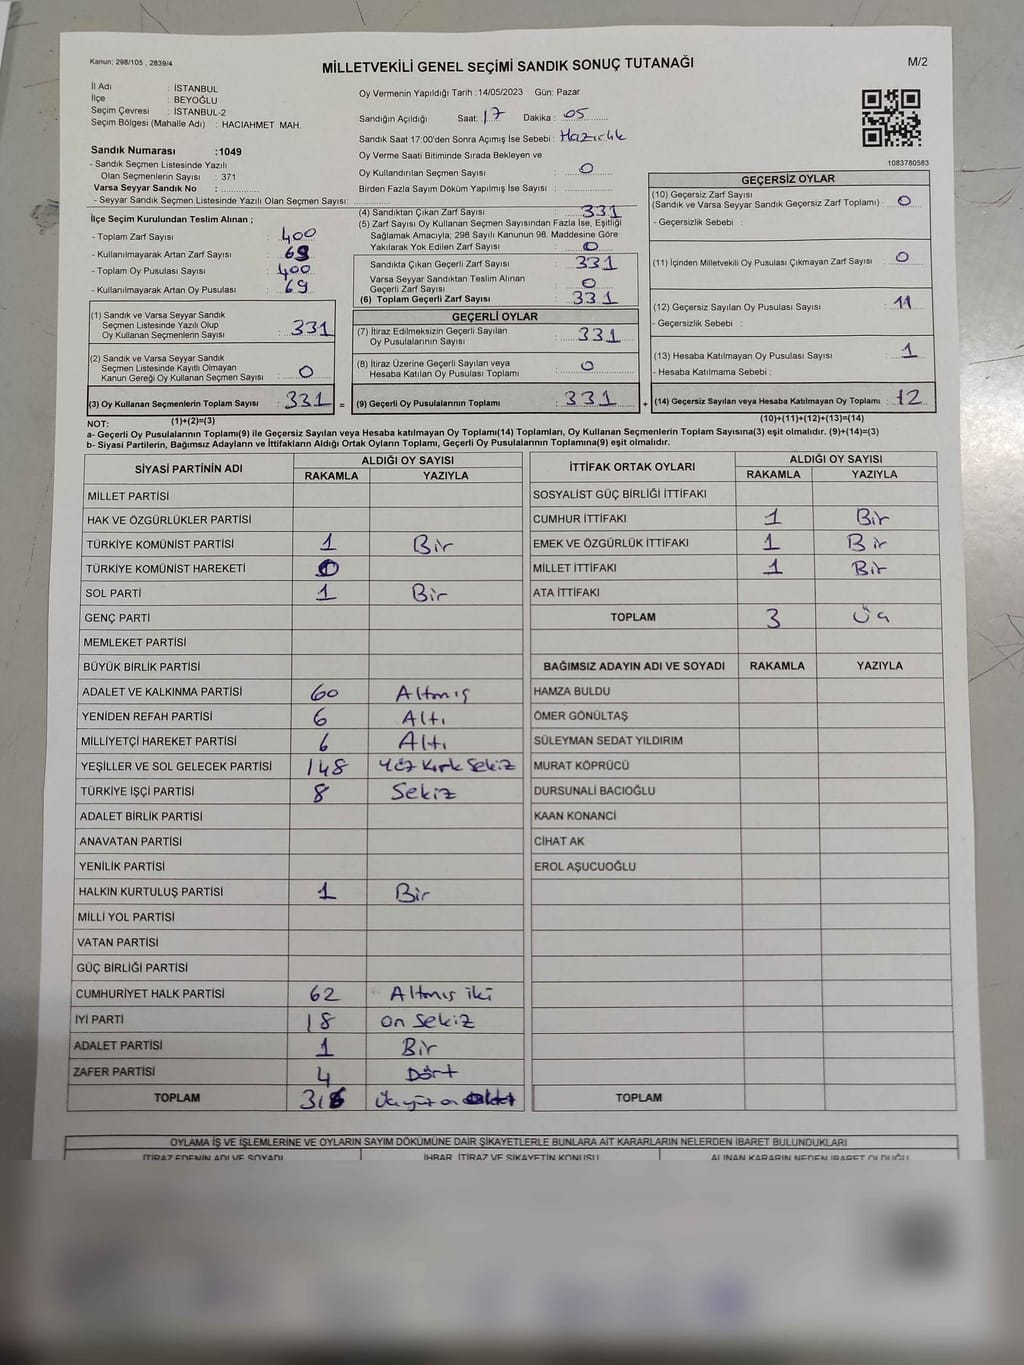 Kanun; 298/105 , 2839/4
MİLLETVEKİLİ GENEL SEÇİMİ SANDIK SONUÇ TUTANAĞI
M/2
İl Adı : İSTANBUL
İlçe : BEYOĞLU
Seçim Çevresi : İSTANBUL-2
Seçim Bölgesi (Mahalle Adı) : HACIAHMET MAH.
Sandık Numarası :1049
- Sandık Seçmen Listesinde Yazılı
Olan Seçmenlerin Sayısı : 371
Varsa Seyyar Sandık No :
- Seyyar Sandık Seçmen Listesinde Yazılı Olan Seçmen Sayısı:
Oy Vermenin Yapıldığı Tarih :14/05/2023 Gün: Pazar
Sandığın Açıldığı Saat: 17 Dakika : 05
Sandık Saat 17:00'den Sonra Açımış İse Sebebi : Hazırlık
Oy Verme Saati Bitiminde Sırada Bekleyen ve
Oy Kullandırılan Seçmen Sayısı : 0
Birden Fazla Sayım Döküm Yapılmış İse Sayısı :
1083780583
İlçe Seçim Kurulundan Teslim Alınan ;
- Toplam Zarf Sayısı : 400
- Kullanılmayarak Artan Zarf Sayısı : 69
- Toplam Oy Pusulası Sayısı : 400
- Kullanılmayarak Artan Oy Pusulası : 69
(1) Sandık ve Varsa Seyyar Sandık
Seçmen Listesinde Yazılı Olup
Oy Kullanan Seçmenlerin Sayısı : 331
(2) Sandık ve Varsa Seyyar Sandık
Seçmen Listesinde Kayıtlı Olmayan
Kanun Gereği Oy Kullanan Seçmen Sayısı : 0
(3) Oy Kullanan Seçmenlerin Toplam Sayısı : 331 =
(1)+(2)=(3)
(4) Sandıktan Çıkan Zarf Sayısı : 331
(5) Zarf Sayısı Oy Kullanan Seçmen Sayısından Fazla İse, Eşitliği
Sağlamak Amacıyla; 298 Sayılı Kanunun 98. Maddesine Göre
Yakılarak Yok Edilen Zarf Sayısı : 0
Sandıkta Çıkan Geçerli Zarf Sayısı : 331
Varsa Seyyar Sandıktan Teslim Alınan
Geçerli Zarf Sayısı : 0
(6) Toplam Geçerli Zarf Sayısı : 331
GEÇERLİ OYLAR
(7) İtiraz Edilmeksizin Geçerli Sayılan
Oy Pusulalarının Sayısı : 331
(8) İtiraz Üzerine Geçerli Sayılan veya
Hesaba Katılan Oy Pusulası Toplamı : 0
(9) Geçerli Oy Pusulalarının Toplamı : 331 +
GEÇERSİZ OYLAR
(10) Geçersiz Zarf Sayısı
(Sandık ve Varsa Seyyar Sandık Geçersiz Zarf Toplamı) : 0
- Geçersizlik Sebebi :
(11) İçinden Milletvekili Oy Pusulası Çıkmayan Zarf Sayısı : 0
(12) Geçersiz Sayılan Oy Pusulası Sayısı : 11
- Geçersizlik Sebebi :
(13) Hesaba Katılmayan Oy Pusulası Sayısı : 1
- Hesaba Katılmama Sebebi :
(14) Geçersiz Sayılan veya Hesaba Katılmayan Oy Toplamı : 12
(10)+(11)+(12)+(13)=(14)
NOT:
a- Geçerli Oy Pusulalarının Toplamı(9) ile Geçersiz Sayılan veya Hesaba katılmayan Oy Toplamı(14) Toplamları, Oy Kullanan Seçmenlerin Toplam Sayısına(3) eşit olmalıdır. (9)+(14)=(3)
b- Siyasi Partilerin, Bağımsız Adayların ve İttifakların Aldığı Ortak Oyların Toplamı, Geçerli Oy Pusulalarının Toplamına(9) eşit olmalıdır.
SİYASİ PARTİNİN ADI ALDIĞI OY SAYISI
RAKAMLA YAZIYLA
MİLLET PARTİSİ
HAK VE ÖZGÜRLÜKLER PARTİSİ
TÜRKİYE KOMÜNİST PARTİSİ 1 Bir
TÜRKİYE KOMÜNİST HAREKETİ 0
SOL PARTİ 1 Bir
GENÇ PARTİ
MEMLEKET PARTİSİ
BÜYÜK BİRLİK PARTİSİ
ADALET VE KALKINMA PARTİSİ 60 Altmış
YENİDEN REFAH PARTİSİ 6 Altı
MİLLİYETÇİ HAREKET PARTİSİ 6 Altı
YEŞİLLER VE SOL GELECEK PARTİSİ 148 Yüz Kırk Sekiz
TÜRKİYE İŞÇİ PARTİSİ 8 Sekiz
ADALET BİRLİK PARTİSİ
ANAVATAN PARTİSİ
YENİLİK PARTİSİ
HALKIN KURTULUŞ PARTİSİ 1 Bir
MİLLİ YOL PARTİSİ
VATAN PARTİSİ
GÜÇ BİRLİĞİ PARTİSİ
CUMHURİYET HALK PARTİSİ 62 Altmış iki
İYİ PARTİ 18 on Sekiz
ADALET PARTİSİ 1 Bir
ZAFER PARTİSİ 4 Dört
TOPLAM 316 Üçyüz on
İTTİFAK ORTAK OYLARI ALDIĞI OY SAYISI
RAKAMLA YAZIYLA
SOSYALİST GÜÇ BİRLİĞİ İTTİFAKI
CUMHUR İTTİFAKI 1 Bir
EMEK VE ÖZGÜRLÜK İTTİFAKI 1 Bir
MİLLET İTTİFAKI 1 Bir
ATA İTTİFAKI
TOPLAM 3 Üç
BAĞIMSIZ ADAYIN ADI VE SOYADI RAKAMLA YAZIYLA
HAMZA BULDU
ÖMER GÖNÜLTAŞ
SÜLEYMAN SEDAT YILDIRIM
MURAT KÖPRÜCÜ
DURSUNALİ BACIOĞLU
KAAN KONANCİ
CİHAT AK
EROL AŞUCUOĞLU
TOPLAM
OYLAMA İŞ VE İŞLEMLERİNE VE OYLARIN SAYIM DÖKÜMÜNE DAİR ŞİKAYETLERLE BUNLARA AİT KARARLARIN NELERDEN İBARET BULUNDUKLARI
İTİRAZ EDENİN ADI VE SOYADI İHBAR, İTİRAZ VE ŞİKAYETİN KONUSU ALINAN KARARIN NEDEN İBARET OLDUĞU